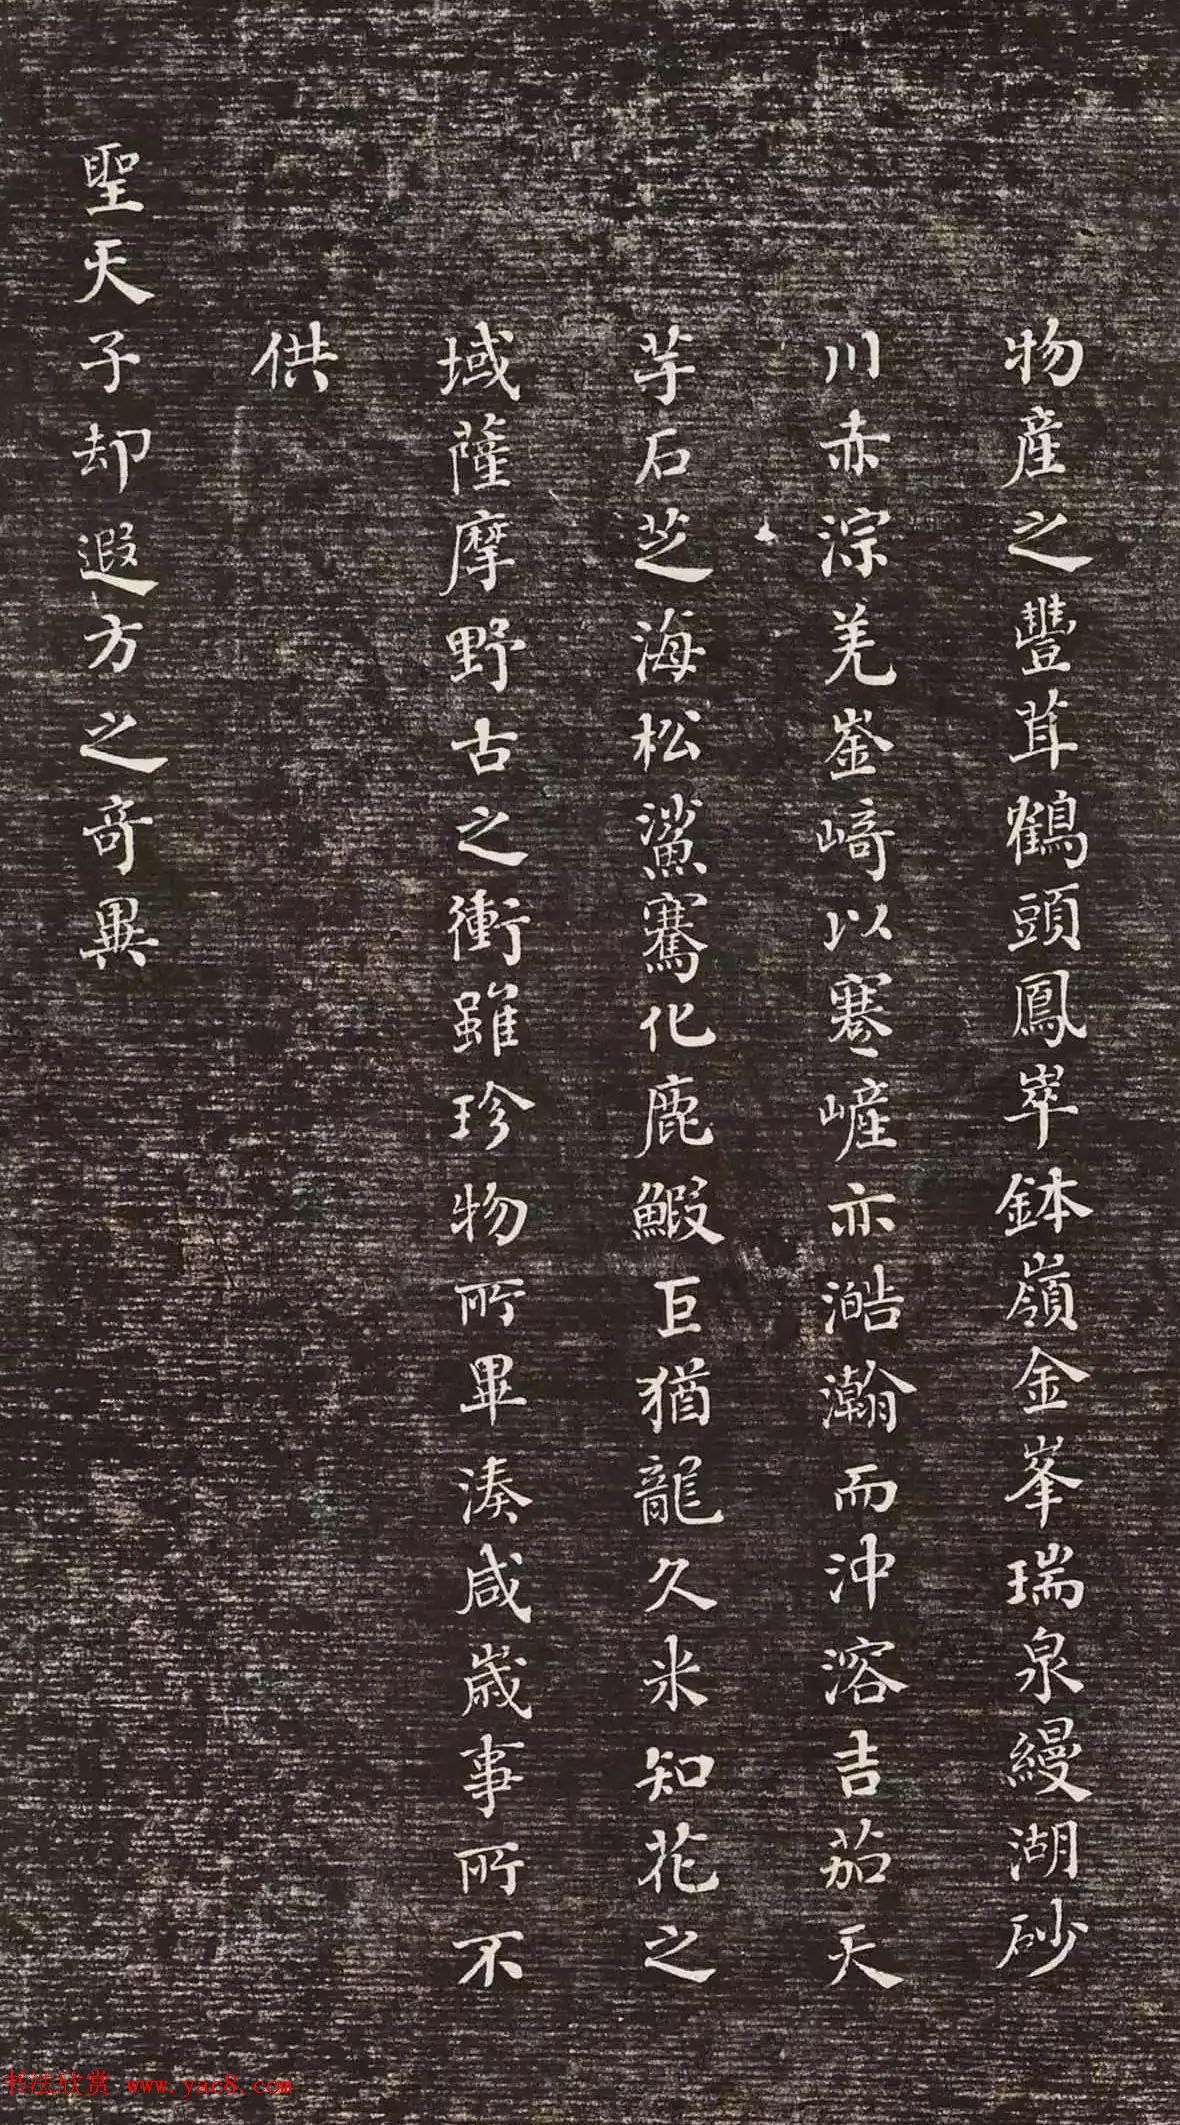 物産之豐茸鶴頭鳳崒鉢嶺金峯瑞泉縵湖砂
川赤淙羌崟崎以蹇嵼亦澔瀚而沖溶吉茄天
芋石芝海松鯊騫化鹿鰕巨猶龍久米知花之
域薩摩野古之衝雖珍物所畢湊咸歲事所不
供
聖天子却遐方之奇異
书法欣赏 www.yac8.com